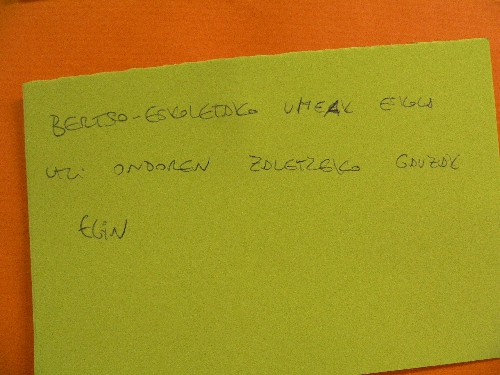 BERTSO-ESKOLETAKO UMEAK ESKOLA
UTZI ONDOREN ZALETZEKO GAUZAK
EGIN